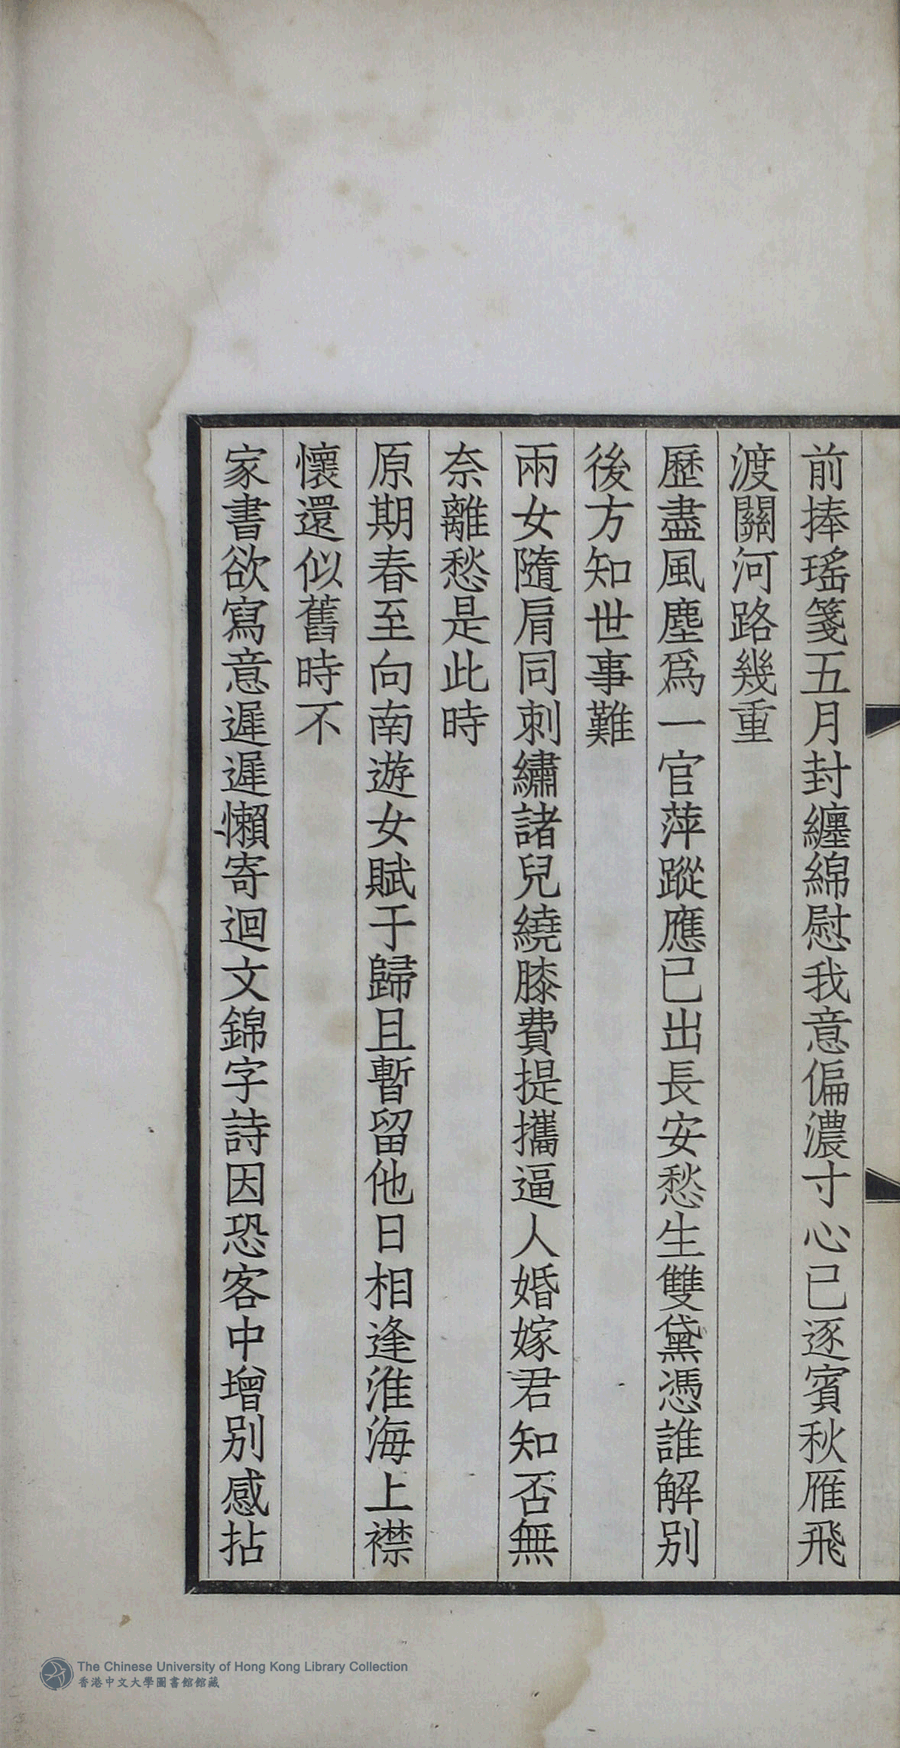 前捧瑤箋五月封纏綿慰我意偏濃寸心已逐賓秋雁飛
渡關河路幾重
歷盡風塵爲一官萍蹤應已出長安愁生雙黛憑誰解別
後方知世事難
兩女隨肩同刺繡諸兒繞膝費提攜逼人婚嫁君知否無
奈離愁是此時
原期春至向南遊女賦于歸且暫留他日相逢淮海上襟
懷還似舊時不
家書欲寫意遲遲懶寄迴文錦字詩因恐客中增別感拈
The Chinese University of Hong Kong Library Collection
香港中文大學圖書館館藏